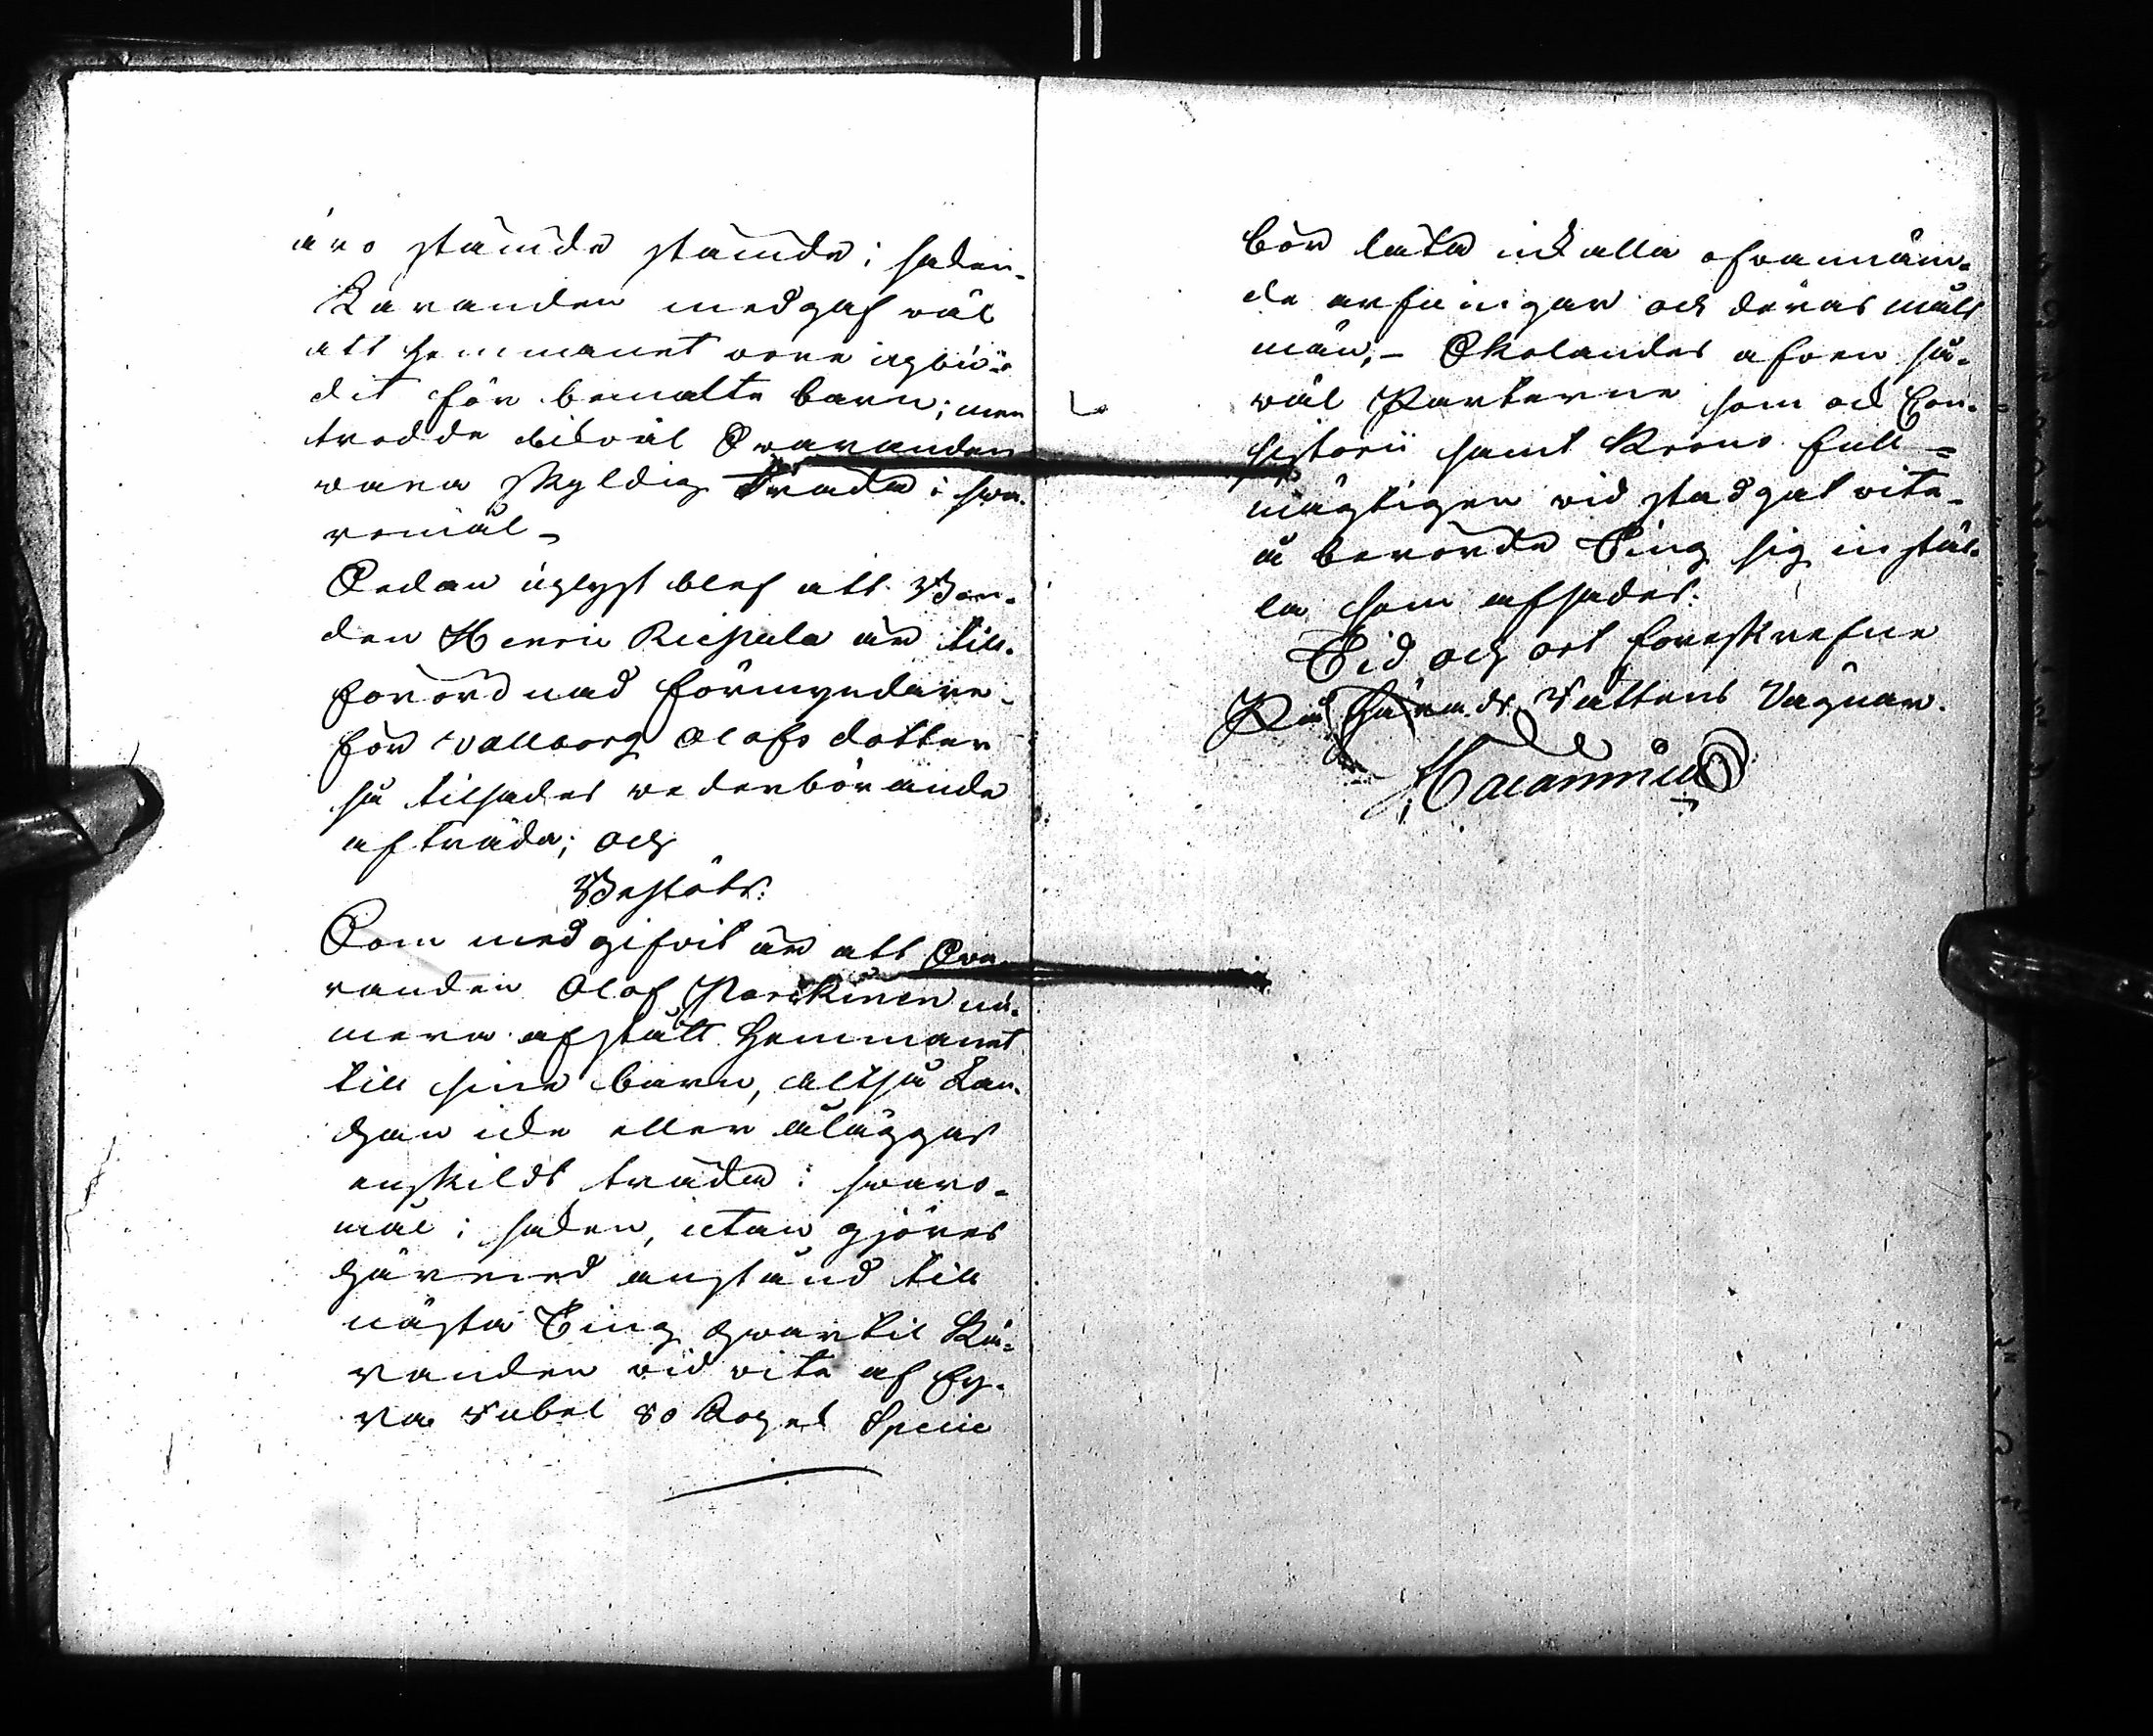 äro stämde stämde i saken.
Käranden medgaf wäl
att hemmanet vore upbu-
dit för bemälte barn; men
trodde likwäl Swaranden
wara skyldig träda i swa-
romål.
Sedan uplyst blef att Bon-
den Henric Riekula är till-
förordnad förmyndare
för Wallborg Olofsdotter
så tilsades wederbörande
afträda; och
Beslöts:
Som medgifvit är att Swa-
randen Olof Parckinen nu-
mera afstått Hemmanet
till sine barn, altså kan
han icke eller åläggas
enskildt träda i swaro-
mål i saken, utan gjöres
härmed anstånd till
nästa Ting hwartil Kä-
randen vid vite af fy-
ra Rubel 80 Kopek Specie
bör låta inkalla ofvannäm-
de arfvingar och deras måls
män; – Skolandes afven så-
wäl Parterne som ock Con-
sistorii samt Krono full-
mägtigen vid stadgat vite
å berörde Ting sig instäl-
la som afsades.
Tid och ort föreskrefne
På Härads Rättens Vägnar.